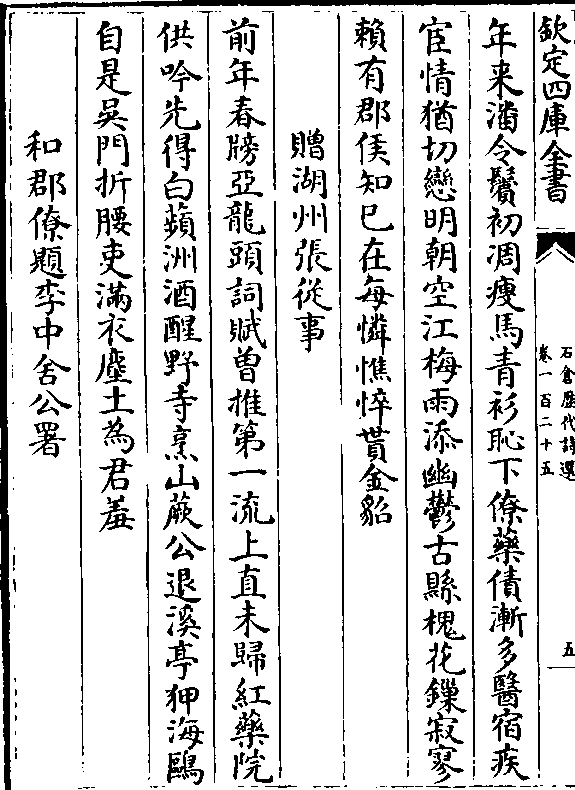 欽定四庫全書
石倉歷代詩選
卷一百二十五
五
年来潘令鬢初凋瘦馬青衫恥下僚藥債漸多醫宿疾
宦情猶切戀明朝空江梅雨添幽鬱古縣槐花鏁寂寥
賴有郡侯知已在每憐憔悴貰金貂
贈湖州張從事
前年春牓亞龍頭詞賦曽推第一流上直未歸紅藥院
供吟先得白蘋洲酒醒野寺烹山蕨公退溪亭狎海鷗
自是吳門折腰吏滿衣塵土為君羞
和郡僚題李中舍公署